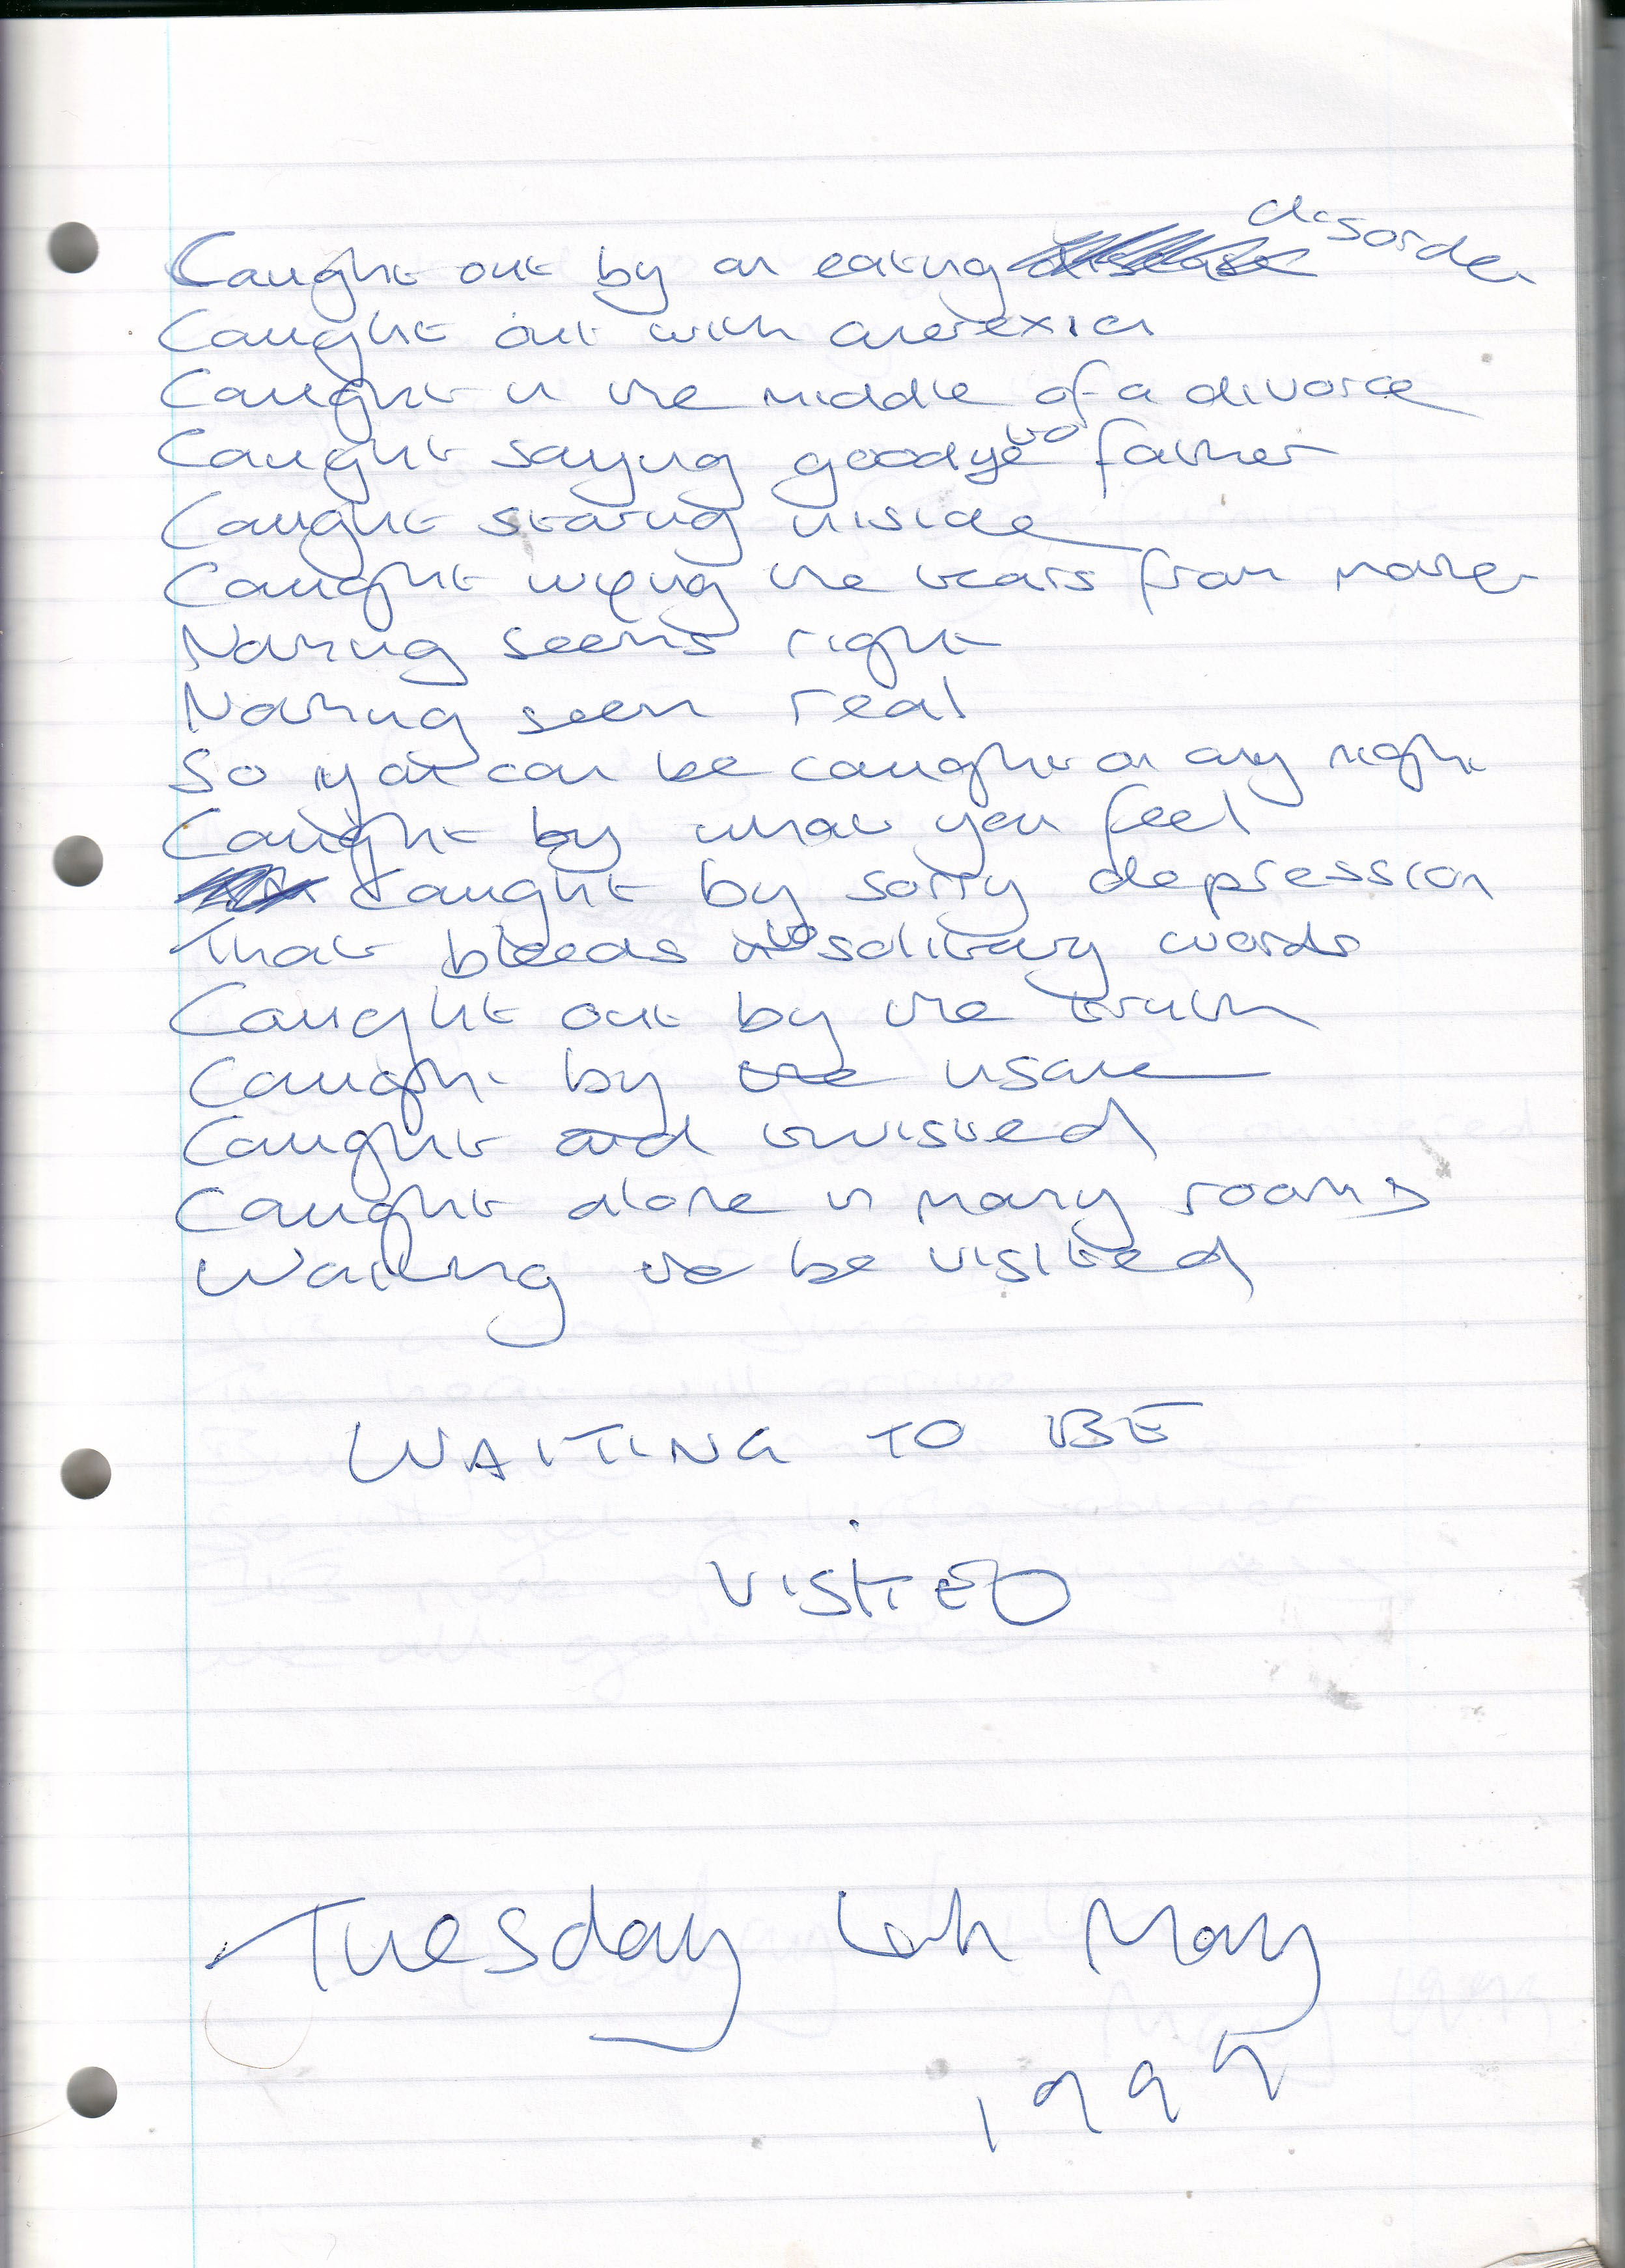 Caught out by an eating disease disorder
Caught out with anerexia
Caught in the middle of a divorce
Caught saying goodye to father
Caught staring inside
Caught wiping the tears from mother
Nothing seems right
Nothing seem real
So you can be caught on any night
Caught by what you feel
Caught by sorry depression
That bleeds into solitary words
Caught out by the truth
Caught by the
Caught and twisted
Caught alone in many rooms
Waiting to be visited
WAITING TO BE
VISITED
Tuesday May
1999